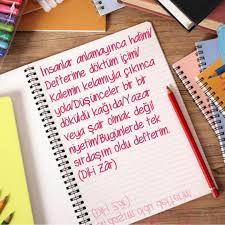 İnsanlar anlamayınca halimi/
Defterime döktüm içimi/
Kalemin kelamıyla çıkınca
yola/Düşünceler bir bir
döküldü kağıda/Yazar
veya şair olmak değil
niyetim/Bugünlerde tek
sırdaşım oldu defterim.
(Dil-i Zâr)